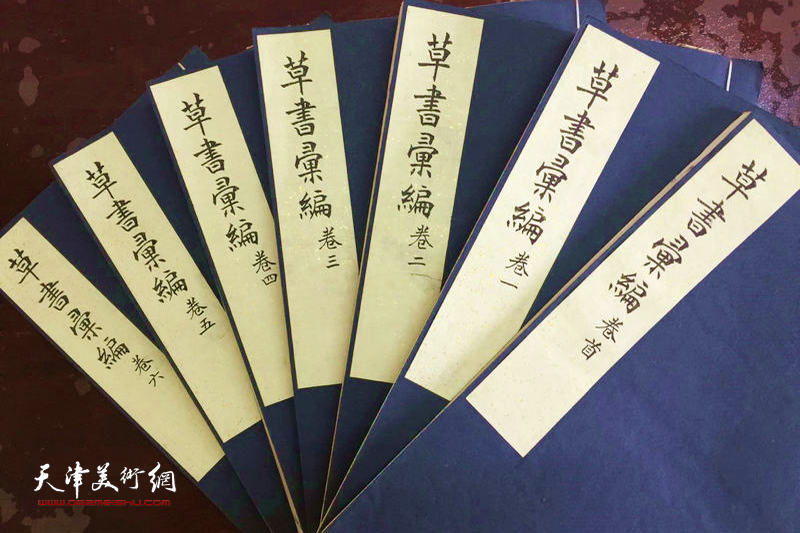 草書彙編 卷首
草書彙編 卷一
草書彙編 卷二
草書彙編 卷三
草書彙編 卷四
草書彙編 卷五
草書彙編 卷六
天津美術網
www.tjmeishu.com